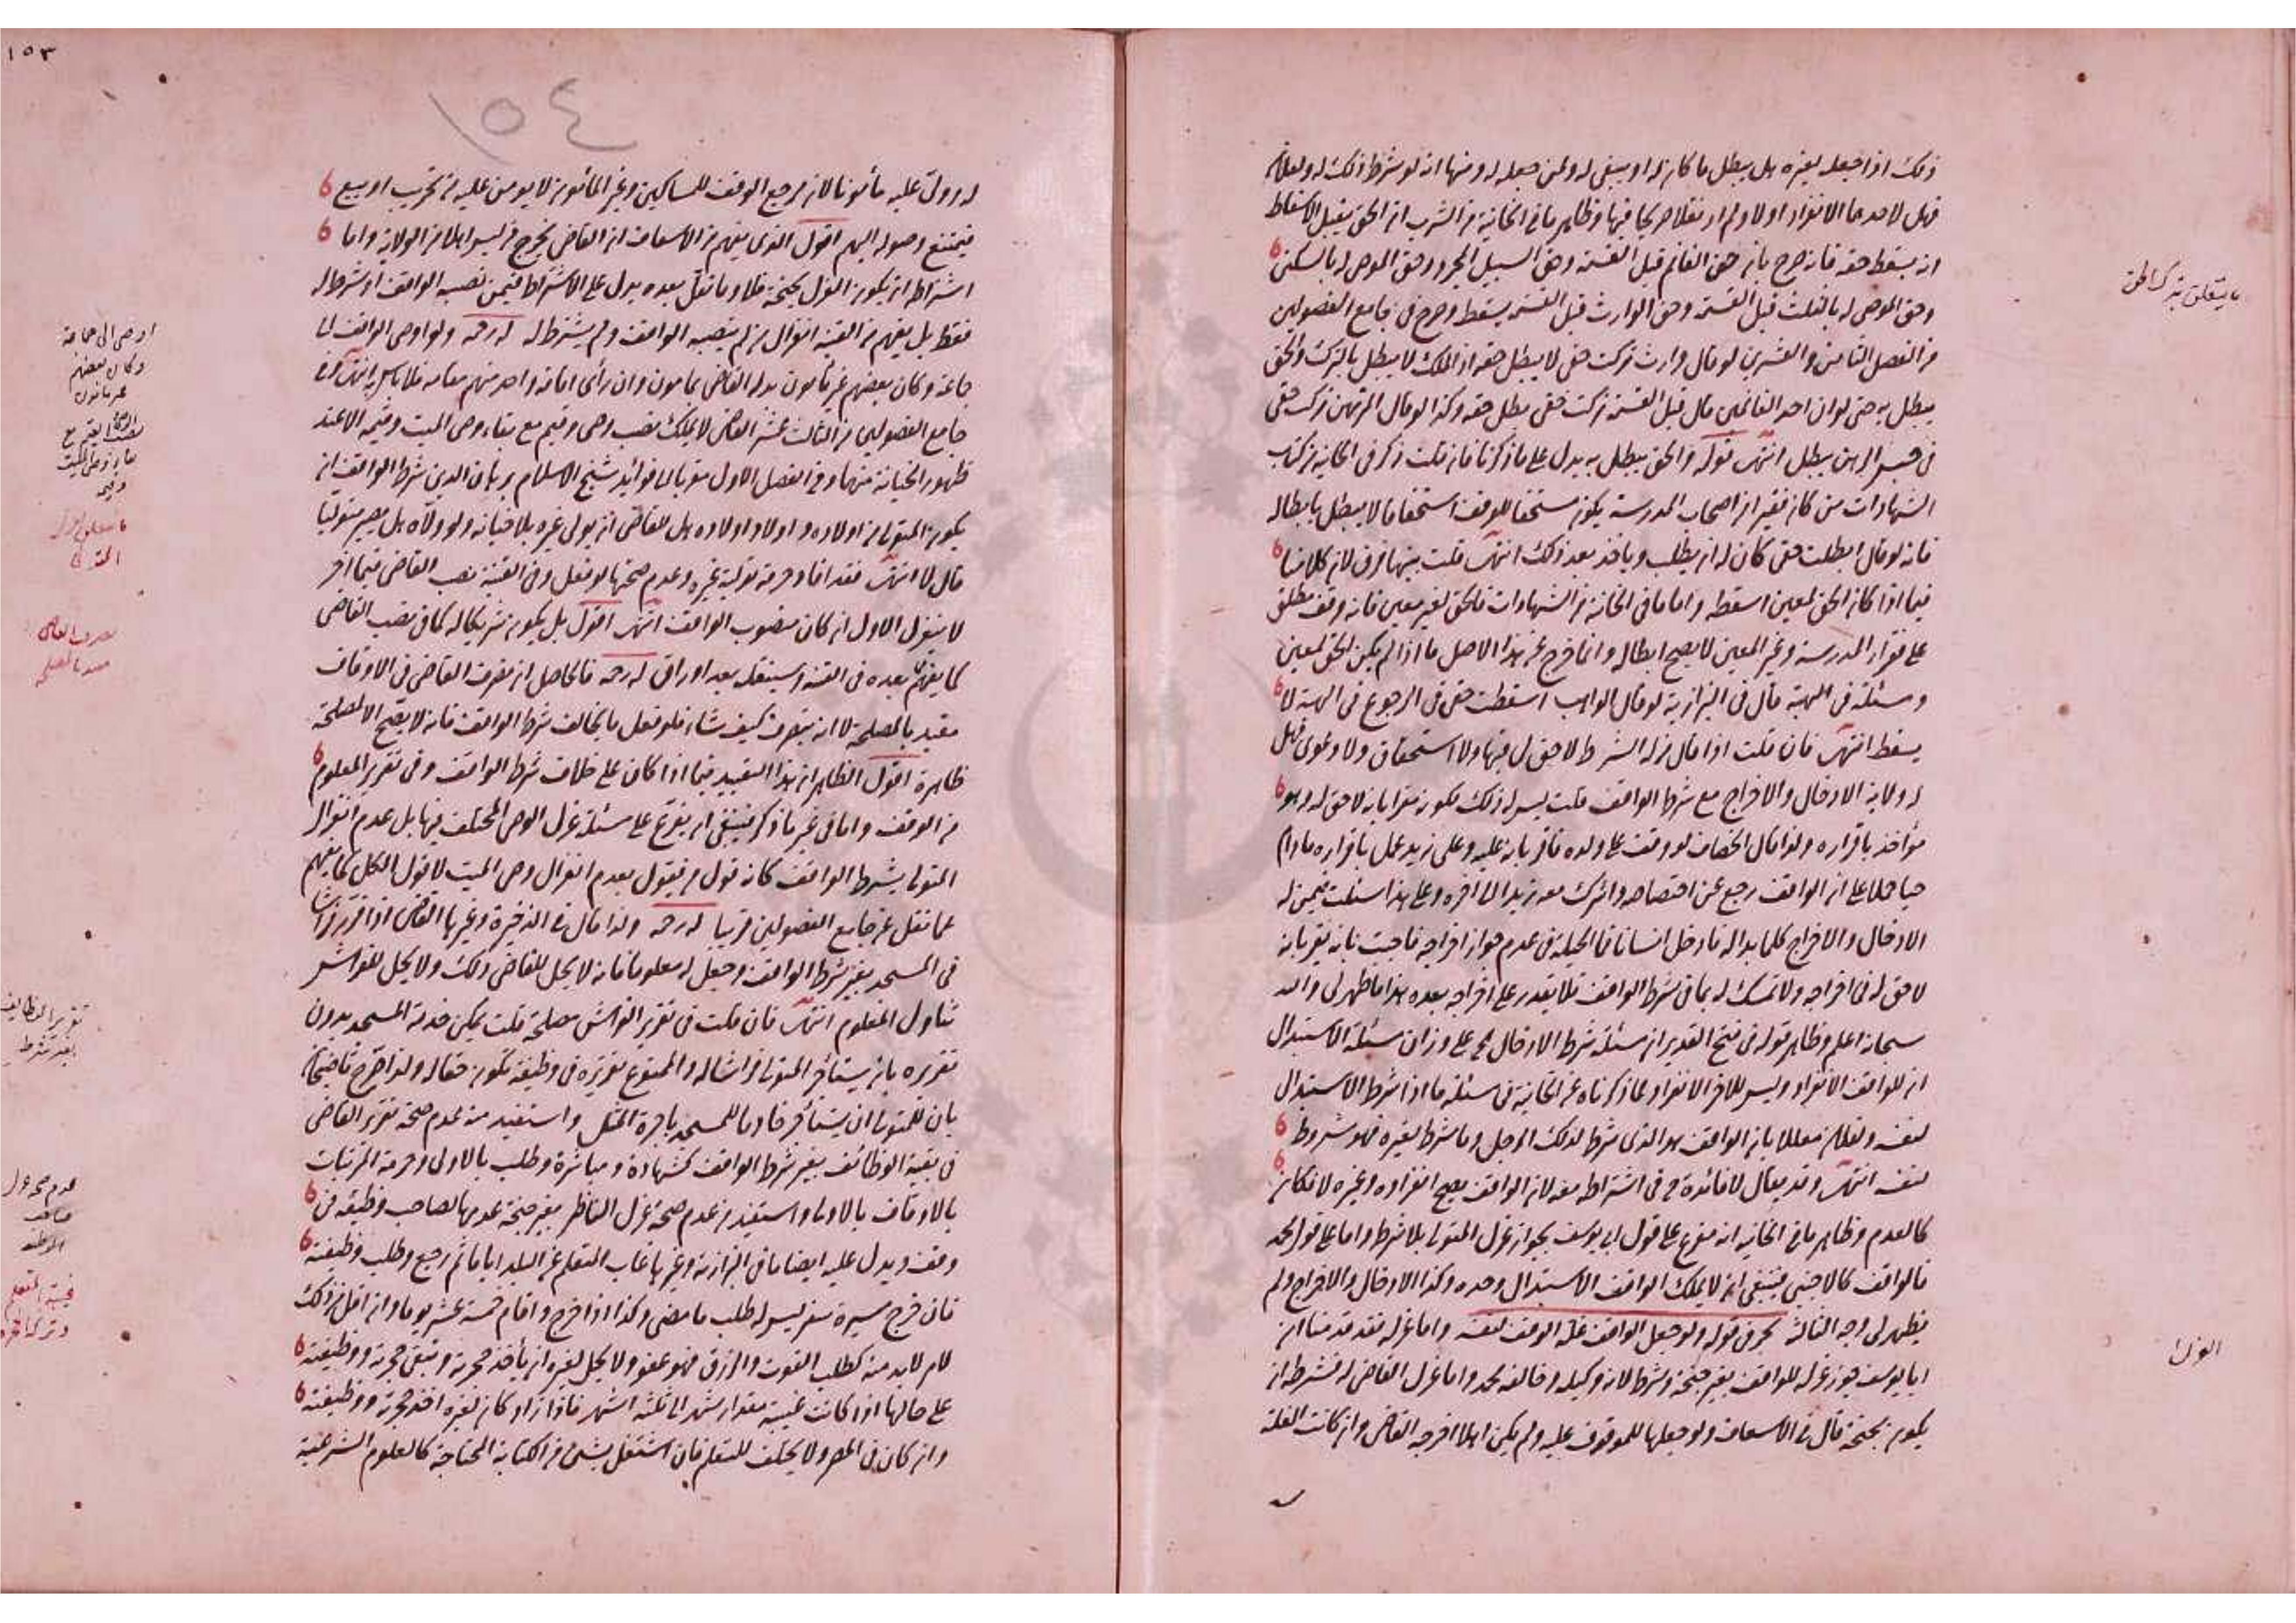 ذلك اذا جعله لغيره هل يبطل ما كان له او يبقى له ولمن جعله له ومنها انه لو شرط ذلك له ولفلان
فهل لاحدهما الانفراد اولا ولم ار نقلا صريحا فيها وظاهر ما في الخانية من الشرب ان الحق يقبل الاسقاط
انه يسقط حقه فانه صرح بان حق الغانم قبل القسمة وحق المسيل المجرد وحق الموصى له بالسكنى
وحق الموصى له بالثلث قبل القسمة وحق الوارث قبل القسمة يسقط وصرح في جامع الفصولين
من الفصل الثامن والعشرين لو قال وارث تركت حقي لا يبطل حقه اذ الملك لا يبطل بالترك والحق
يبطل به حتى لو ان احد الغانمين قال قبل القسمة تركت حقي بطل حقه وكذا لو قال المرتهن تركت حقي
في حبس الرهن يبطل انتهى قوله والحق يبطل به يدل على ما ذكرنا فان قلت ذكر في الخانية من كتاب
الشهادات من كان فقيرا من اصحاب المدرسة يكون مستحقا للوقف استحقاقا لا يبطل بابطاله
فانه لو قال ابطلت حقي كان له ان يطلب وياخذ بعد ذلك انتهى قلت بينهما فرق لان كلامنا
فيما اذا كان الحق لمعين اسقطه واما ما في الخانية من الشهادات فالحق لغير معين فانه وقف مطلق
على فقراء المدرسة وغير المعين لا يصح ابطاله وانما خرج عن هذا الاصل ما اذا لم يكن الحق لمعين
ومسئلة في الهبة قال في البزازية لو قال الواهب اسقطت حقي في الرجوع في الهبة لا
يسقط انتهى فان قلت اذا قال من له الشرط لا حق لي فيها ولا استحقاق ولا دعوى فهل
له ولاية الادخال والاخراج مع شرط الواقف قلت ليس له ذلك فكونه مقرا بانه لا حق له وهو
مؤاخذ باقراره ولذا قال الخصاف لو وقف على ولده فاقر بانه عليه وعلى زيد عمل باقراره مادام
حيا حملا على ان الواقف رجع عن اختصاصه واشرك معه زيدا الى اخره وعلى هذا سئلت فيمن له
الادخال والاخراج كلما بدا له فادخل انسانا فما الحيلة في عدم جواز اخراجه فاجبت بانه يقر بانه
لا حق له في اخراجه ولا تمسك له بما في شرط الواقف فلا يقدر على اخراجه بعده هذا ما ظهر لي والله
سبحانه اعلم وظاهر قوله في فتح القدير ان مسئلة شرط الادخال هي على وزان مسئلة الاستبدال
ان للواقف الانفراد وليس للاخر الانفراد لما ذكرناه عن الخانية في مسئلة ما اذا شرط الاستبدال
لنفسه ولفلان معللا بان الواقف هو الذي شرط لذلك الرجل وما شرط لغيره فهو مشروط
لنفسه انتهى وقد يقال لا فائدة في اشتراطه معه لان الواقف يصح انفراده وغيره لا فكان
كالعدم وظاهر ما في الخانية انه مفرع على قول ابي يوسف بجواز عزل المتولي بلا شرط واما على قول محمد
فالواقف كالاجنبي فينبغي ان لا يملك الواقف الاستبدال وحده وكذا الادخال والاخراج ولم
يظهر لي وجه الثالثة بحر في قوله ولو جعل الواقف غلة الوقف لنفسه واما عزله فقد قدمنا ان
ابا يوسف جوز عزله للواقف بغير جنحة وشرط لانه وكيله وخالفه محمد واما عزل القاضي له فشرطه ان
يكون بجنحة قال في الاسعاف ولو جعلها للموقوف عليه ولم يكن اهلا اخرجه القاضي وان كانت الغلة
ما يتعلق بترك الحق
العزل
١٥٣
١٥٤
له وولى عليه مأمونا لان مرجع الوقف للمساكين وغير المأمون لا يؤمن عليه من تخريب او بيع
فيمتنع وصوله اليهم اقول الذي يفهم من الاسعاف ان القاضي يخرج من ليس اهلا من الولاية واما
اشتراط ان يكون العزل بجنحة فلا وما نقل بعده يدل على الاشتراط فيمن نصبه الواقف او شرط له
فقط بل يفهم من القنية انعزال من لم ينصبه الواقف ولم يشترط له له رحمه ولو اوصى الواقف الى
جماعة وكان بعضهم غير مأمون بدله القاضي بمامون وان رأى اقامة واحد منهم مقامه فلا باس به انتهى وفي
جامع الفصولين من الثالث عشر القاضي لا يملك نصب وصي وقيم مع بقاء وصي الميت وقيمه الا عند
ظهور الخيانة منهما وفي الفصل الاول معزيا الى فوائد شيخ الاسلام برهان الدين شرط الواقف ان
يكون المتولي من اولاده واولاد اولاده هل للقاضي ان يولي غيره بلا خيانة ولو ولاه هل يصير متوليا
قال لا انتهى فقد افاد حرمة تولية غيره وعدم صحتها لو فعل وفي القنية نصب القاضي قيما اخر
لا ينعزل الاول ان كان منصوب الواقف انتهى اقول بل يكون شريكا له كما في نصب القاضي
كما يفهم بعده في القنية وسينقله بعد اوراق له رحمه فالحاصل ان تصرف القاضي في الاوقاف
مقيد بالمصلحة لا انه يتصرف كيف شاء فلو فعل ما يخالف شرط الواقف فانه لا يصح الا لمصلحة
ظاهرة اقول الظاهر ان هذا التقييد فيما اذا كان على خلاف شرط الواقف وفي تقرير المعلوم
من الوقف واما في غير ما ذكر فينبغي ان يفرع على مسئلة عزل الوصي المختلف فيها بل عدم انعزال
المتولي بشرط الواقف كانه قول من يقول بعدم انعزال وصي الميت لا قول الكل كما يفهم
مما نقل عن جامع الفصولين قريبا له رحمه ولذا قال في الذخيرة وغيرها القاضي اذا قرر فراشا
في المسجد بغير شرط الواقف وجعل له معلوما فانه لا يحل للقاضي ذلك ولا يحل للفراش
تناول المعلوم انتهى فان قلت في تقرير الفراش مصلحة قلت يمكن خدمة المسجد بدون
تقريره بان يستأجر المتولي فراشا له والممنوع تقريره في وظيفة تكون حقا له ولذا صرح قاضيخان
بان للمتولي ان يستأجر خادما للمسجد باجرة المثل واستفيد منه عدم صحة تقرير القاضي
في بقية الوظائف بغير شرط الواقف كشهادة ومباشرة وطلب بالاولى وحرمة المرتبات
بالاوقاف بالاولى واستفيد من عدم صحة عزل الناظر بغير جنحة عدمها لصاحب وظيفة في
وقف ويدل عليه ايضا ما في البزازية وغيرها غاب المتعلم عن البلد اياما ثم رجع وطلب وظيفته
فان خرج مسيرة سفر ليس له طلب ما مضى وكذا اذا خرج واقام خمسة عشر يوما وان اقل من ذلك
لامر لابد منه كطلب القوت والرزق فهو عفو ولا يحل لغيره ان يأخذ حجرته وتبقى حجرته ووظيفته
على حالها اذا كانت غيبته مقدار شهر الى ثلثة اشهر فاذا زاد كان لغيره اخذ حجرته ووظيفته
وان كان في المصر ولا يختلف للتعلم فان اشتغل بشيء من الكتابة المحتاجة كالعلوم الشرعية
اوصى الى جماعة
وكان بعضهم
غير مامون
تصرف القاضي
مقيد بالمصلحة
تقرير الوظائف
بغير شرط
غيبة المتعلم